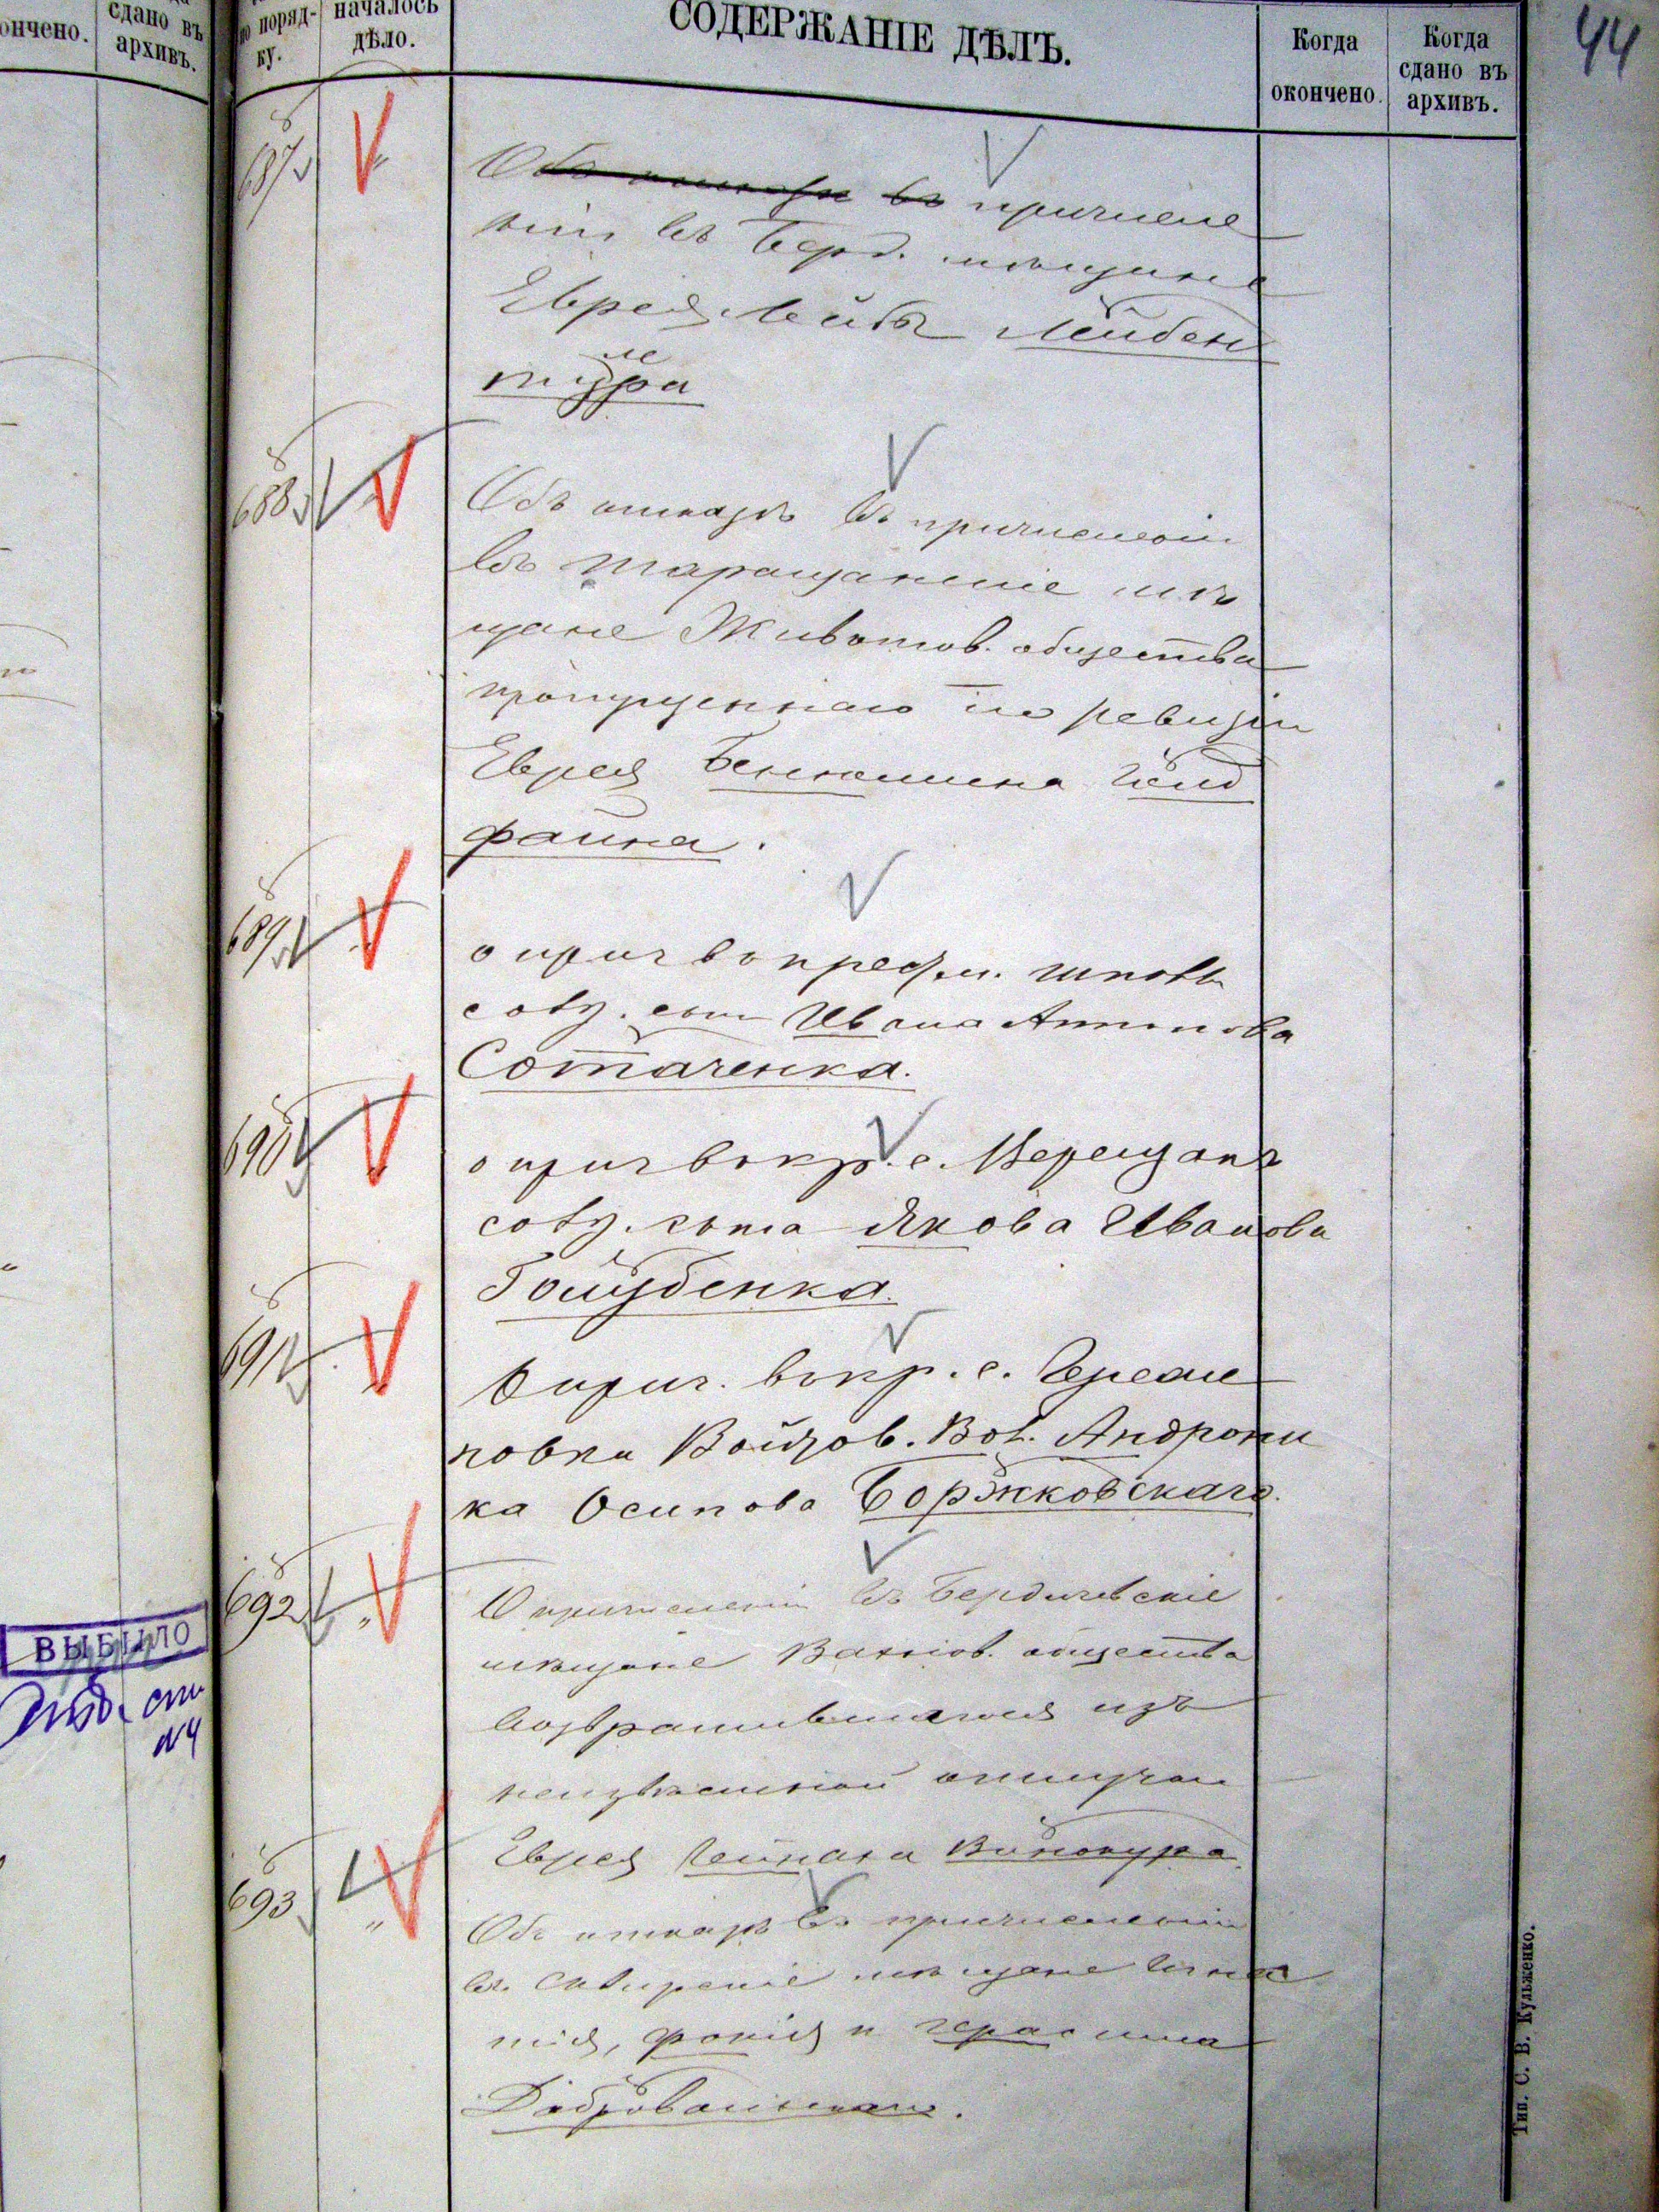 44
ончено.
сдано въ
архивъ.
по поряд-
ку.
началось
дѣло.
СОДЕРЖАНІЕ ДѢЛЪ.
Когда
окончено.
Когда
сдано въ
архивъ.
687
Объ отказѣ въ причисле
ніи въ Берд. мѣщане
Еврея Лейбы Лейбен
688
Объ отказѣ въ причисленіи
въ Таращанскіе мѣ
щане Животов. общества
пропущеннаго по ревизіи
Еврея Беньямина Гольд
файна.
689
о прич въ кр
Ивана Антонова
Сотаченка.
690
о прич въ кр. с. Верещакъ
Якова Иванова
Голубенка.
691
О прич. въ кр. с.
повки Войтов. Вол. Андрони
ка Осипова Боржковскаго.
692
О причисленіи въ Бердичевскіе
мѣщане Вахнов. общества
возвратившагося изъ
неизвѣстной отлучки
Еврея Винокура.
693
Объ отказѣ въ причисленіи
въ Сквирскіе мѣщане Игна
тія, Фокія и Герасима
ВЫБЫЛО
Тип. С. В. Кульженко.